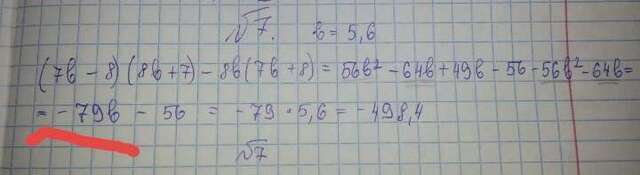 √7. b = 5,6
(7b - 8)(8b + 7) - 8b(7b + 8) = 56b² - 64b + 49b - 56 - 56b² - 64b =
= - 79b - 56 = - 79 · 5,6 = - 498,4
√7